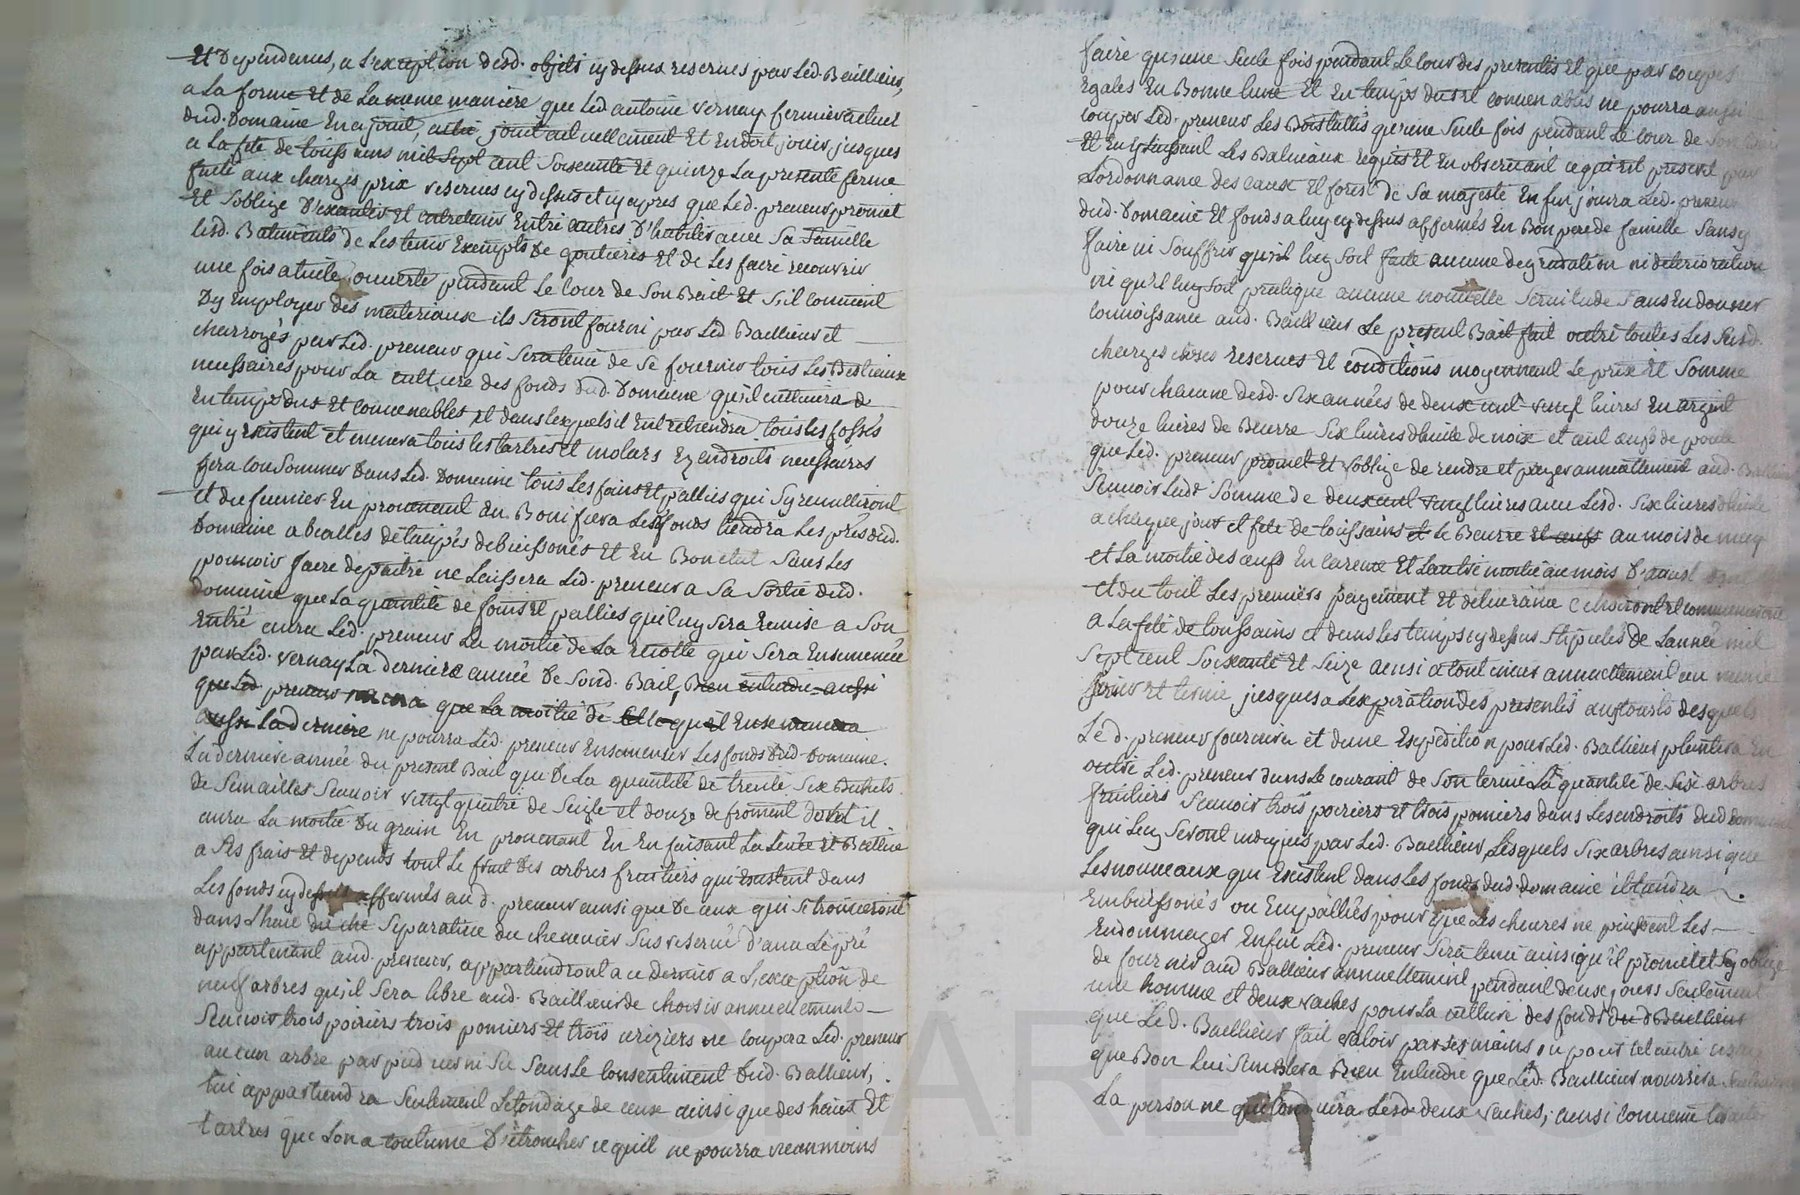 Et Dependences, a L'exception desd. objets cy dessus reserves par Led. Baillieur,
a La forme Et de La meme maniere que Led antoine vernay fermier actuel
dud. Domaine En a jouit, jouit actuellement Et En doit jouir jusques
a La fete de toussains mil Sept cent Soixante Et quinze La presente ferme
faite aux charges prix reserves cy dessus et cy apres que Led. preneur promet
Et S'oblige D'executer Et entretenir Entre autres D'habiter avec Sa famille
Lesd. Batiments de Les tenir Exempts de goutieres Et de Les faire recouvrir
une fois a tuile ouverte pendant Le cour de Son Bail Et S'il convient
Dy Employer des materiaux ils Seront fourni par Led Baillieur et
charroyés par Led. preneur qui Sera tenu de Se fournir tous Les Bestiaux
necessaires pour La culture des fonds dud. Domaine qu'il cultivera
En temps dus Et convenables et dans lesquels il Entretiendra tous les fossés
qui y Existent et menera tous les tartres et molars Ez endroits necessaires
fera consommer Dans Led. Domaine tous Les foins et pallies qui Sy recueilliront
et du fumier En provenant En Bonifiera Les fonds tiendra Les prés dud.
Domaine a bealles detaupés debuissonés Et En Bon etat Sans Les
pouvoir faire depaitre ne Laissera Led. preneur a Sa Sortie dud.
domaine que La quantité de foins Et pallies qu'il luy Sera remise a Son
Entré aura Led. preneur La moitié de La recolte qui Sera Ensemencée
par Led. vernay La derniere année De Sond. Bail, Bien entendu aussi
que Led preneur que La moitié de celle qu'il Ensemencera
aussi La derniere ne pourra Led. preneur Ensemencer Les fonds dud Domaine.
La derniere année du present Bail que De La quantité de trente Six Bichets
de Semailles Scavoir vingt quatre de Seigle et douze de froment dont il
aura La moitié Du grain En provenant En En faisant La Levée et Battue
a Ses frais Et depends tout Le fruit Des arbres fruitiers qui Existent dans
Les fonds cy dessus affermés aud. preneur ainsi que De ceux qui Se trouveront
dans L'haie Separative du chenevier Sus reservé d'avec Le pré
appartenant aud. preneur, appartiendront a ce dernier a L'exception de
neuf arbres qu'il Sera libre aud. Baillieur de choisir annuellement
Scavoir trois poiriers trois pomiers Et trois ceriziers ne coupera Led. preneur
aucun arbre par pied ni Sans Le consentiment Dud. Ballieur,
Lui appartiendra Seulement Letondage de ceux ainsi que des haies Et
tartres que Lon a coutume D'étroncher ce qu'il ne pourra neanmoins
faire qu'une Seule fois pendant Le cour des presentes Et que par coupes
Egales En Bonne lune Et En temps du et convenables ne pourra aussi
couper Led. preneur Les Bois taillis qu'une Seule fois pendant Le cour de Son Bail
Et En y Laissant Les Baliveaux requis et En observant ce qui est prescrit par
Lordonnance des eaux Et forest de Sa majesté En fin jouira Led. preneur
dud. Domaine Et fonds a luy cy dessus affermés En Bon pere de famille Sans y
faire ni Souffrir qu'il luy Soit faite aucune degradation ni deterioration
ni qu'il luy Soit pratiqué aucune nouvelle Servitude Sans En donner
connoissance aud. Baillieur Le present Bail fait outre toutes Les Susd.
charges choses reserves Et conditions moyennant Le prix Et Somme
pour chacune desd. Six années de deux cent vingt livres En argent
douze livres de Beurre Six livres dhuile de noix et cent oeufs de poule
que Led. preneur promet Et S'oblige de rendre et payer annuellement aud. Baillieur
Scavoir Ladt Somme de deux cent vingt livres avec Lesd. Six livres dhuile
a chaque jour et fete de toussains le Beurre au mois de may
et La moitié des oeufs En careme Et Lautre moitié au mois D'aoust
et du tout Les premiers payement Et delivrance commenceront
a La feté de toussains et dans Les temps cy dessus Stipulés de Lannée mil
Sept cent Soixante Et Seize ainsi a continuer annuellement au meme
jour et terme jusques a Lexpiration des presentes au cours desquels
Led. preneur fournira et dune Expedition pour Led. Ballieur plantera En
outre Led. preneur dans Le courant de Son terme La quantité de Six arbres
fruitiers Scavoir trois poiriers et trois pomiers dans Les endroits dud domaine
qui Luy Seront indiqués par Led. Baillieur, Lesquels Six arbres ainsi que
Les nouveaux qui Existent dans Les fonds dud. domaine il tiendra
Embuissonés ou Empaillés pour que Les chevres ne puissent Les
Endommager Enfin Led. preneur Sera tenu ainsi qu'il promet et Sy oblige
de fournir aud Ballieur annuellement pendant deux jours Seulement
une homme et deux vaches pour La culture des fonds dud Baillieur
que Led. Baillieur fait valoir par Ses mains ou pour tel autre usage
que Bon Lui Semblera Bien Entendu que Led. Baillieur nourrira
La personne que conduira Lesd. deux vaches, ainsi convenu
CHARLY.RO